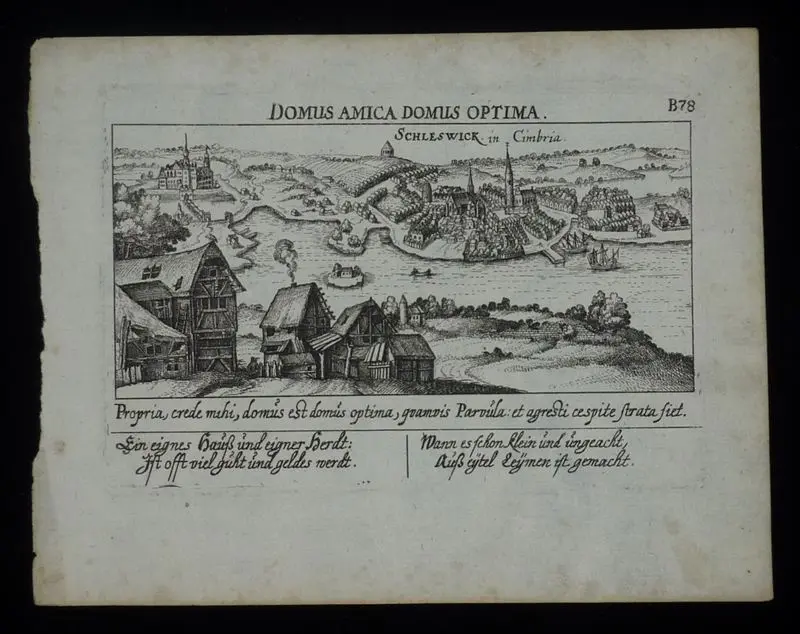 DOMUS AMICA DOMUS OPTIMA.
B78
SCHLESWICK in Cimbria.
Propria, crede mihi, domus est domus optima, quamvis Parvula: et agresti cespite strata fiet.
Ein eignes Hauß und eigner Herdt:
Ist offt viel guht und geldes werdt.
Wann es schon klein und ungeacht,
Auß eytel Leymen ist gemacht.